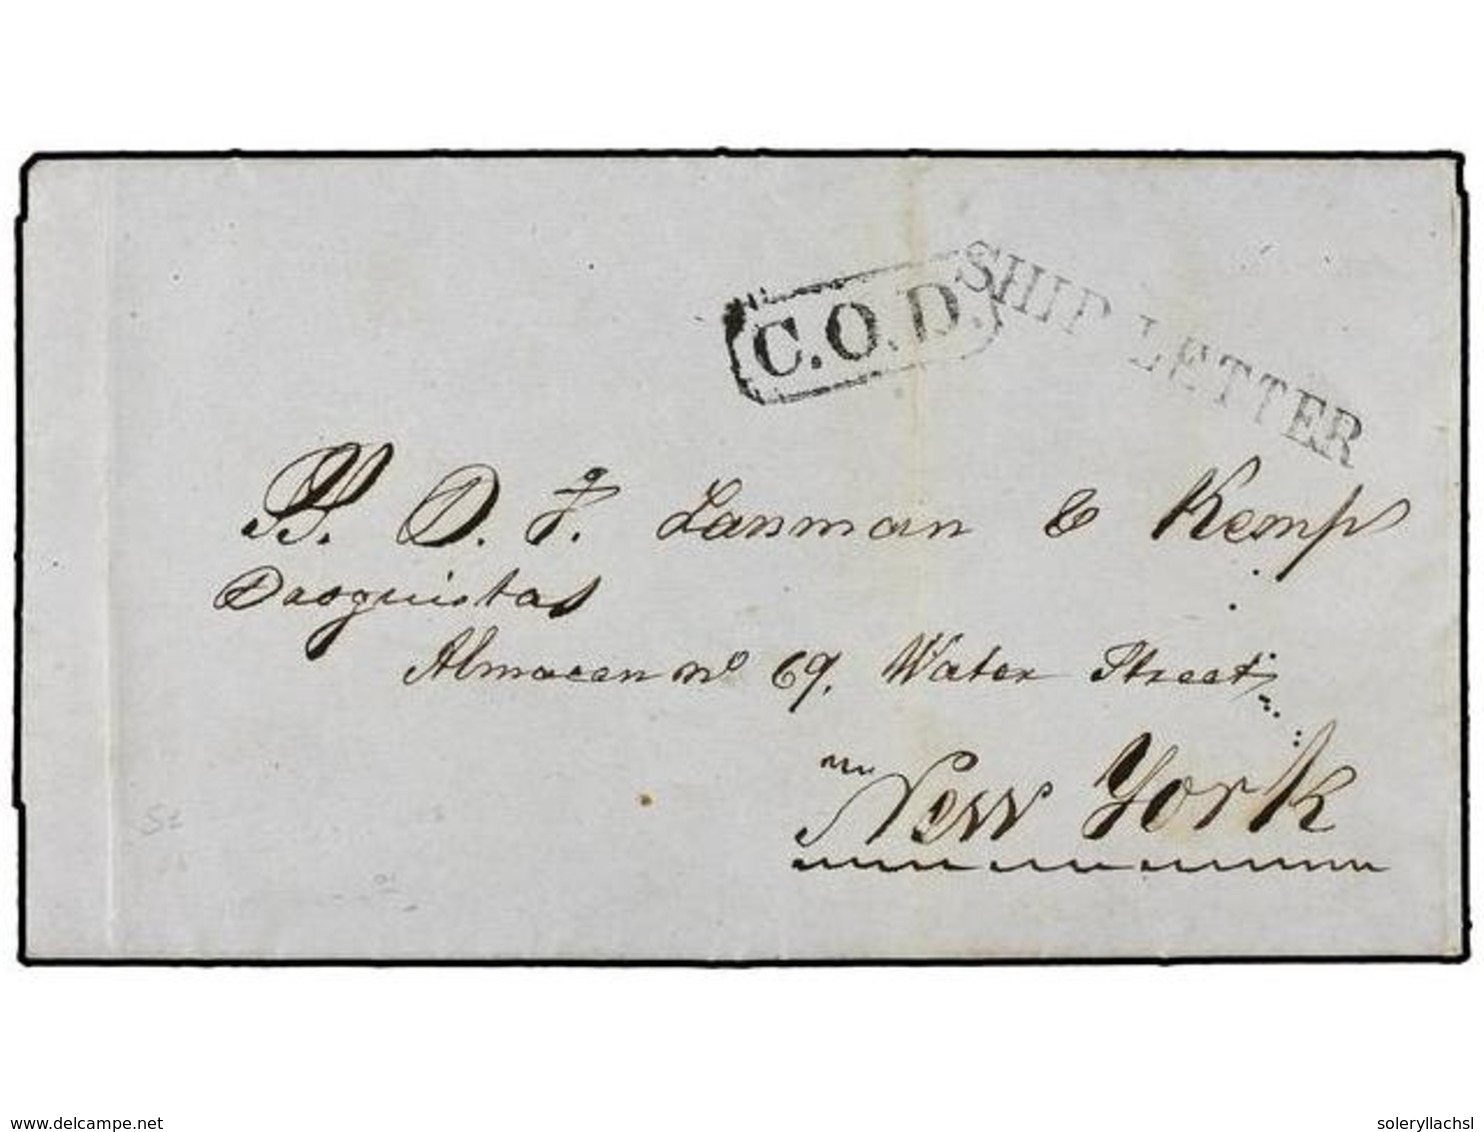 C.O.D.
SHIP LETTER
S. D. J. Lanman & Kemp
Droguistas
Almacen nº 69, Water Street
New York
delcampe.net
soleryllachsl